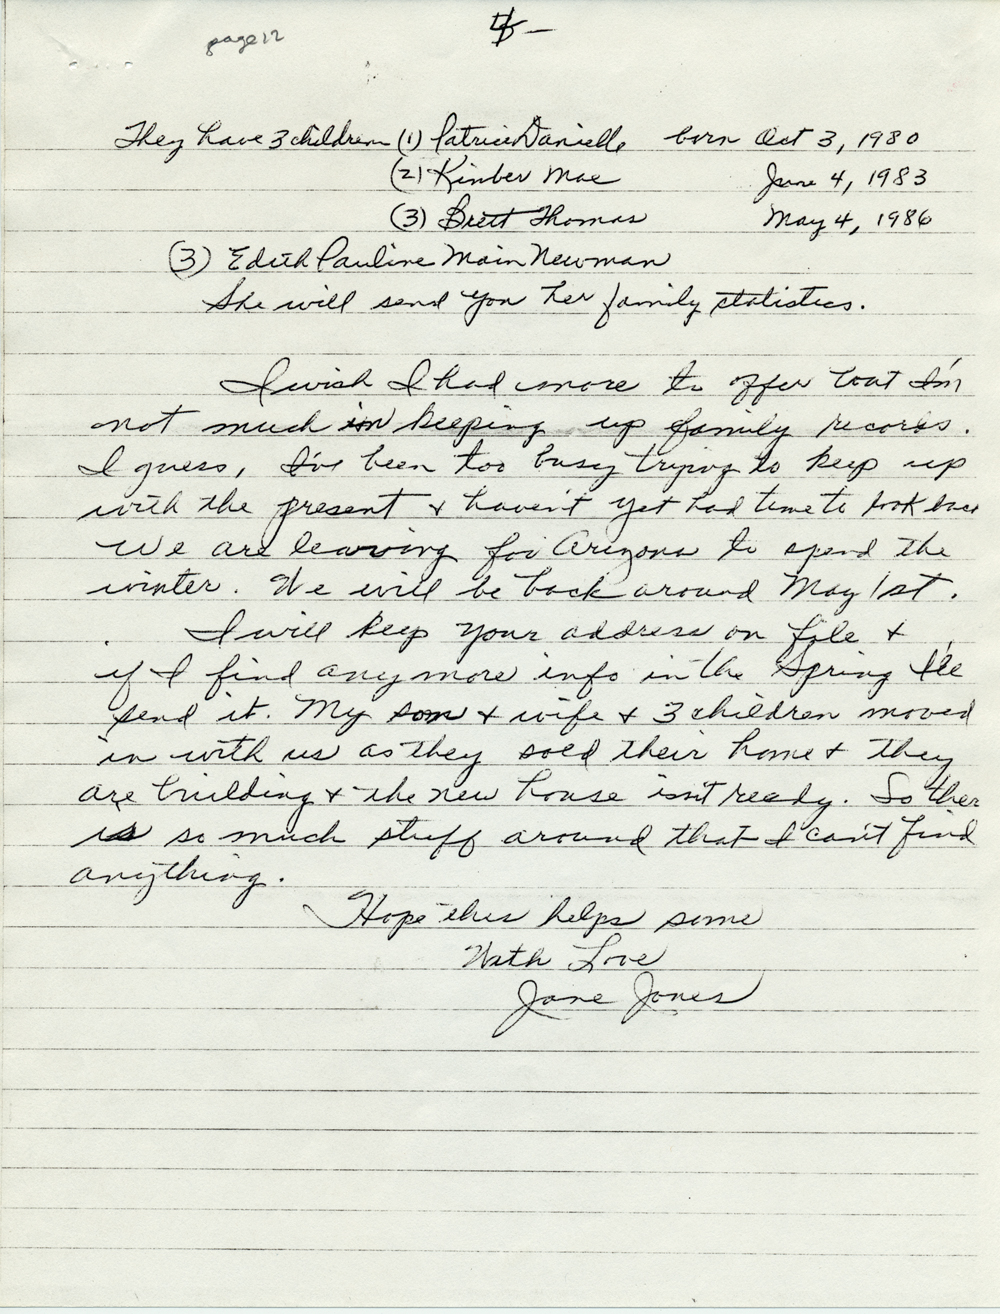 page 12
4-
They have 3 children (1) Patrice Danielle born Oct 3, 1980
(2) Kimber Mae June 4, 1983
(3) Brett Thomas May 4, 1986
(3) Edith Pauline Main Newman
She will send you her family statistics.
I wish I had more to offer but I'm
not much in keeping up family records.
I guess, I've been too busy trying to keep up
with the present & haven't yet had time to look back
We are leaving for Arizona to spend the
winter. We will be back around May 1st.
I will keep your address on file &
if I find any more info in the Spring I'll
send it. My son & wife & 3 children moved
in with us as they sold their home & they
are building & the new house isn't ready. So ther
is so much stuff around that I can't find
anything.
Hope this helps some
With Love
Jane Jones